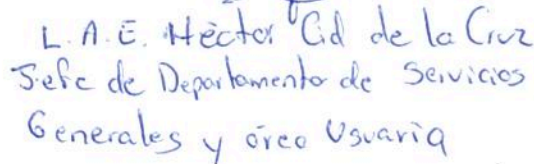 L.A.E. Héctor Cid de la Cruz
Jefe de Departamento de Servicios
Generales y área Usuaria